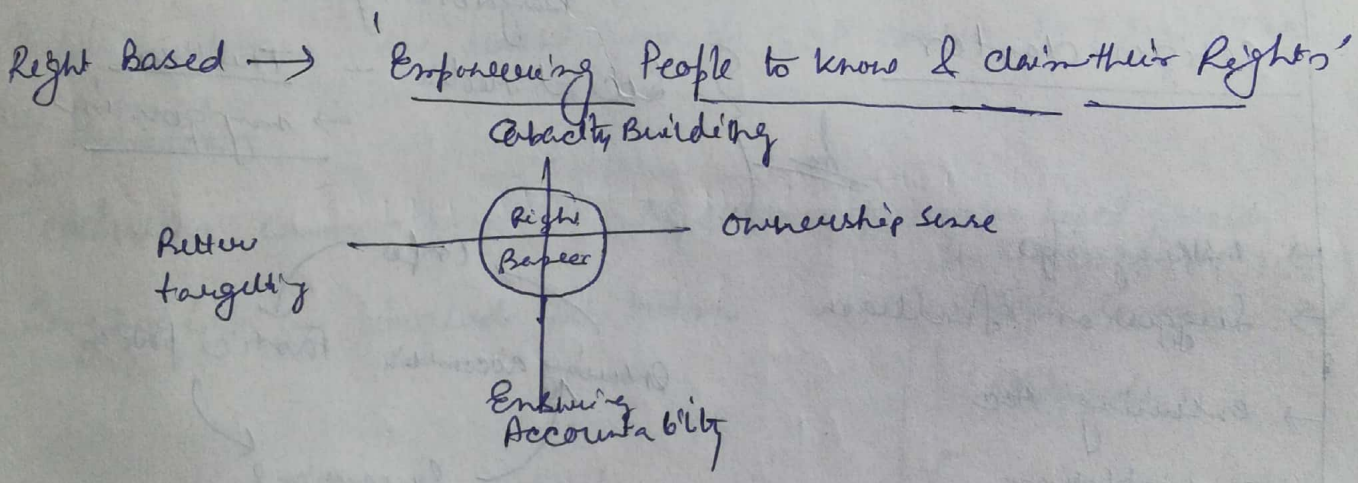 Right Based → 'Empowering People to know & claim their Rights'
Capacity Building
Right
Ownership sense
Better
targetting
Ensuring
Accountability